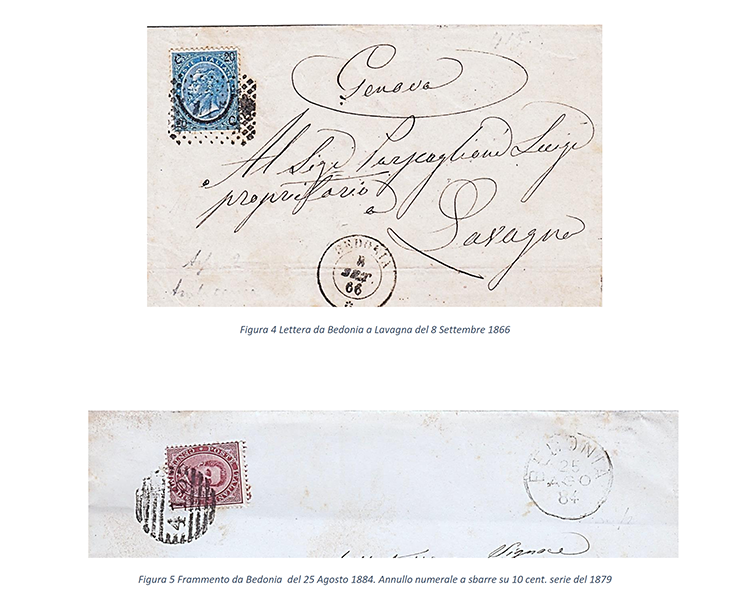 C 20
C
Genova
Al Sigr Luigi
proprietario
a
Lavagna
BEDONIA
8
SET.
66
Figura 4 Lettera da Bedonia a Lavagna del 8 Settembre 1866
POSTE ITALI
4
BEDONIA
25
AGO
84
Figura 5 Frammento da Bedonia del 25 Agosto 1884. Annullo numerale a sbarre su 10 cent. serie del 1879